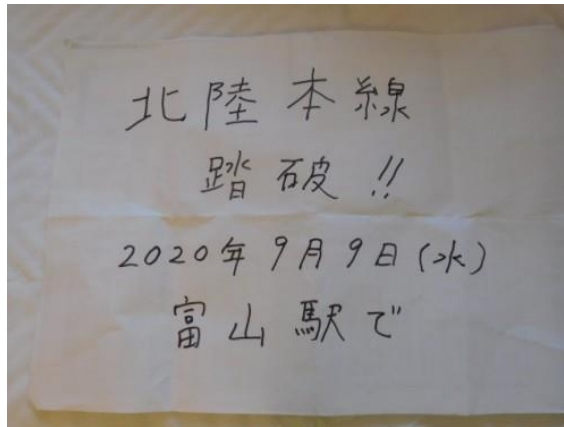 北陸本線
踏破!!
2020年9月9日(水)
富山駅で